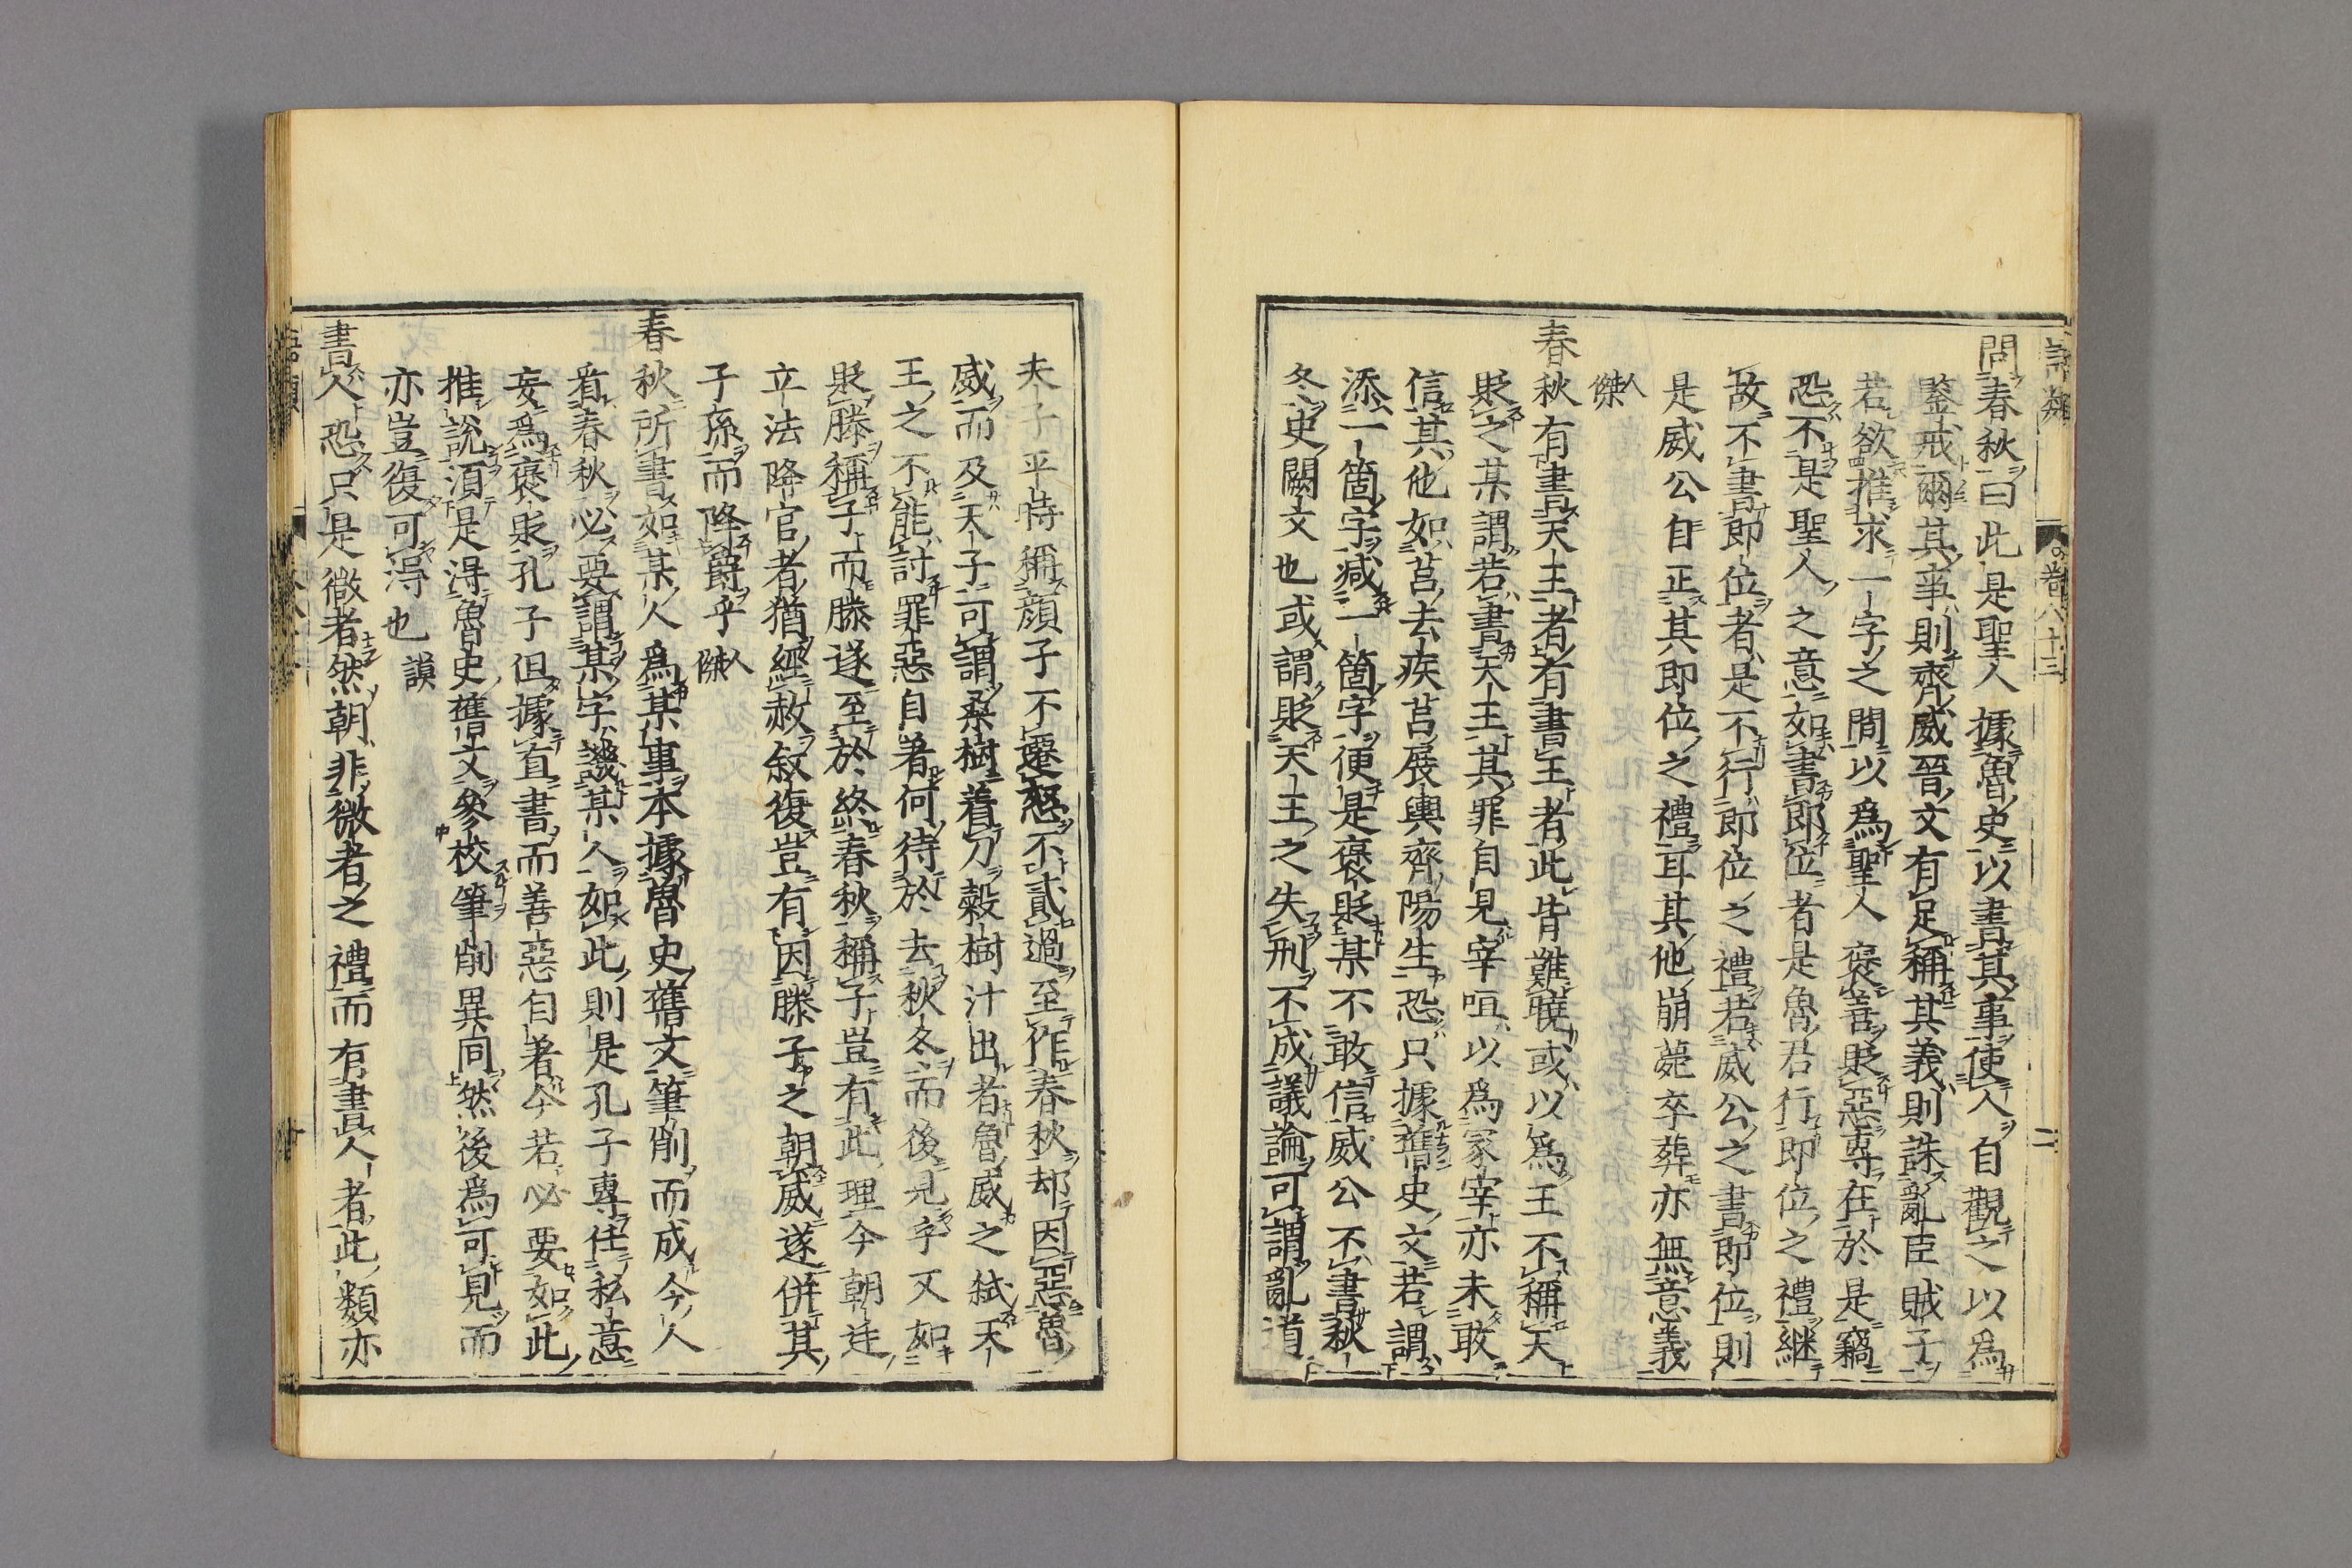 語類
卷八十三
二
問春秋曰此是聖人據魯史以書其事使人自觀之以爲
鑒戒爾其事則齊威晉文有足稱其義則誅亂臣賊子
若欲推求一字之間以爲聖人褒善貶惡專在於是竊
恐不是聖人之意如書即位者是魯君行即位之禮継
故不書即位者是不行即位之禮若威公之書即位則
是威公自正其即位之禮耳其他崩薨卒葬亦無意義
人傑
春秋有書天王者有書王者此皆難曉或以爲王不稱天
貶之某謂若書天王其罪自見宰咺以爲冢宰亦未敢
信其他如莒去疾莒展輿齊陽生恐只據舊史文若謂
添一箇字減一箇字便是褒貶某不敢信威公不書秋
冬史闕文也或謂貶天王之失刑不成議論可謂亂道
夫子平時稱顏子不遷怒不貳過至作春秋却因惡魯
威而及天子可謂桑樹着刀穀樹汁出者魯威之弑天
王之不能討罪惡自著何待於去秋冬而後見乎又如
貶滕稱子而滕遂至於終春秋稱子豈有此理今朝廷
立法降官者猶經赦敘復豈有因滕子之朝威遂併其
子孫而降爵乎人傑
春秋所書如某人爲某事本據魯史舊文筆削而成今人
看春秋必要謂某字譏某人如此則是孔子專任私意
妄爲褒貶孔子但據直書而善惡自著今若必要如此
推說須是得魯史舊文參校筆削異同然後爲可見而
亦豈復可得也謨
書人恐只是微者然朝非微者之禮而有書人者此類亦
語類